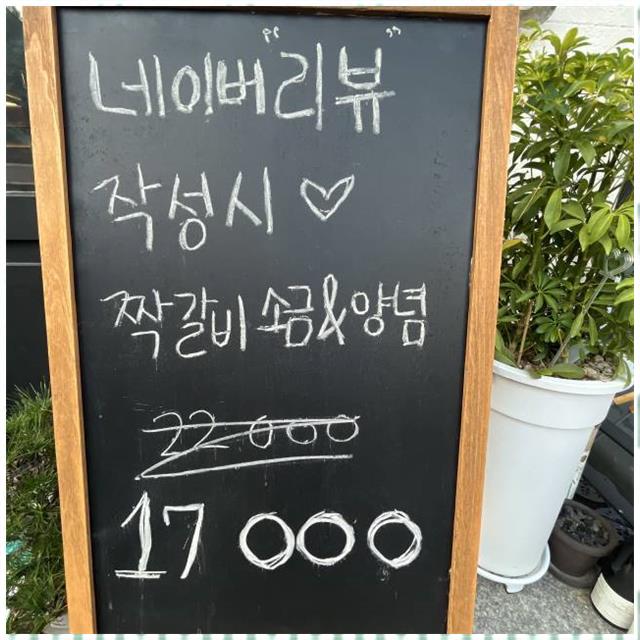 네이버 "리뷰"
작성시 ♡
짝갈비 소금&양념
22 000
17 000